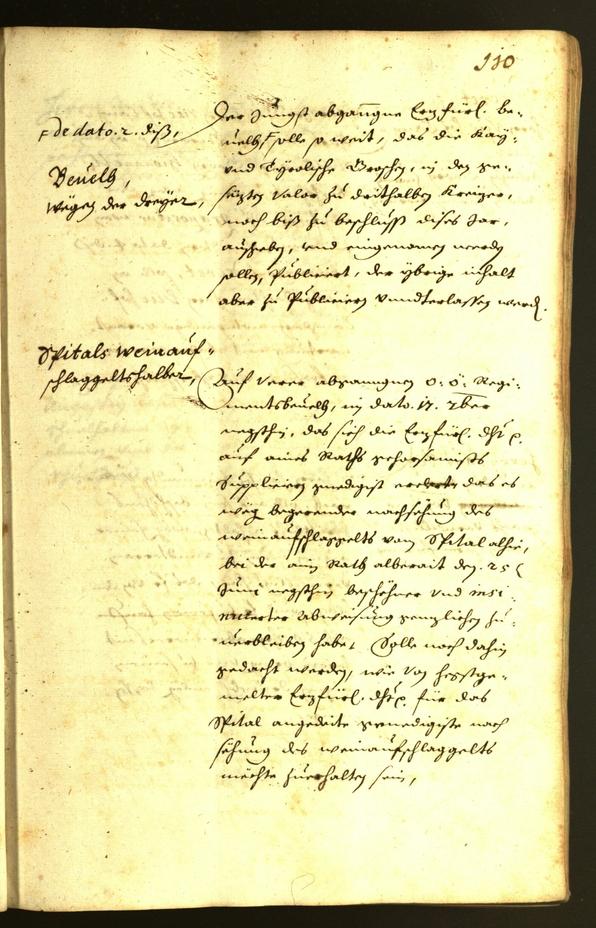 110
de dato. 2. diß,
Beuelh,
wegen der dreyer,
Der Jungst abgangne Erzfürl. be-
uelh solle so weit, das die Kay-
und Tyrolische Groschen, in den ge-
sezten Valor zu drithalben Kreizer,
noch biß zu beschluß dises Jar,
ausgeben, und eingenomen werden
sollen, Publiciert, der ybrige inhalt
aber zu Publiciern vnnderlassen werden.
Spitals Weinauf-
schlaggelts halber,
Auf verer abgangnen O: Ö: Regi-
mentsbeuelh, in dato. 17. 7ber
negsthin, das sich die Erzfürl. dht p.
auf aines Raths gehorsamists
Suppliciern genedigist das es
weg begerender nachsehung des
weinaufschlaggelts vom Spital alhie,
bei der aim Rath alberait den. 25
Juni negsthin beschehner vnd insi-
nuierter abweisung genzlichen zu-
uerbleiben habe, Solle noch dahin
gedacht werden, wie von hegstge-
melter Erzfürl. dht p. für das
Spital angedeite genedigiste nach
sehung des weinaufschlaggelts
möchte zuerhalten sein,